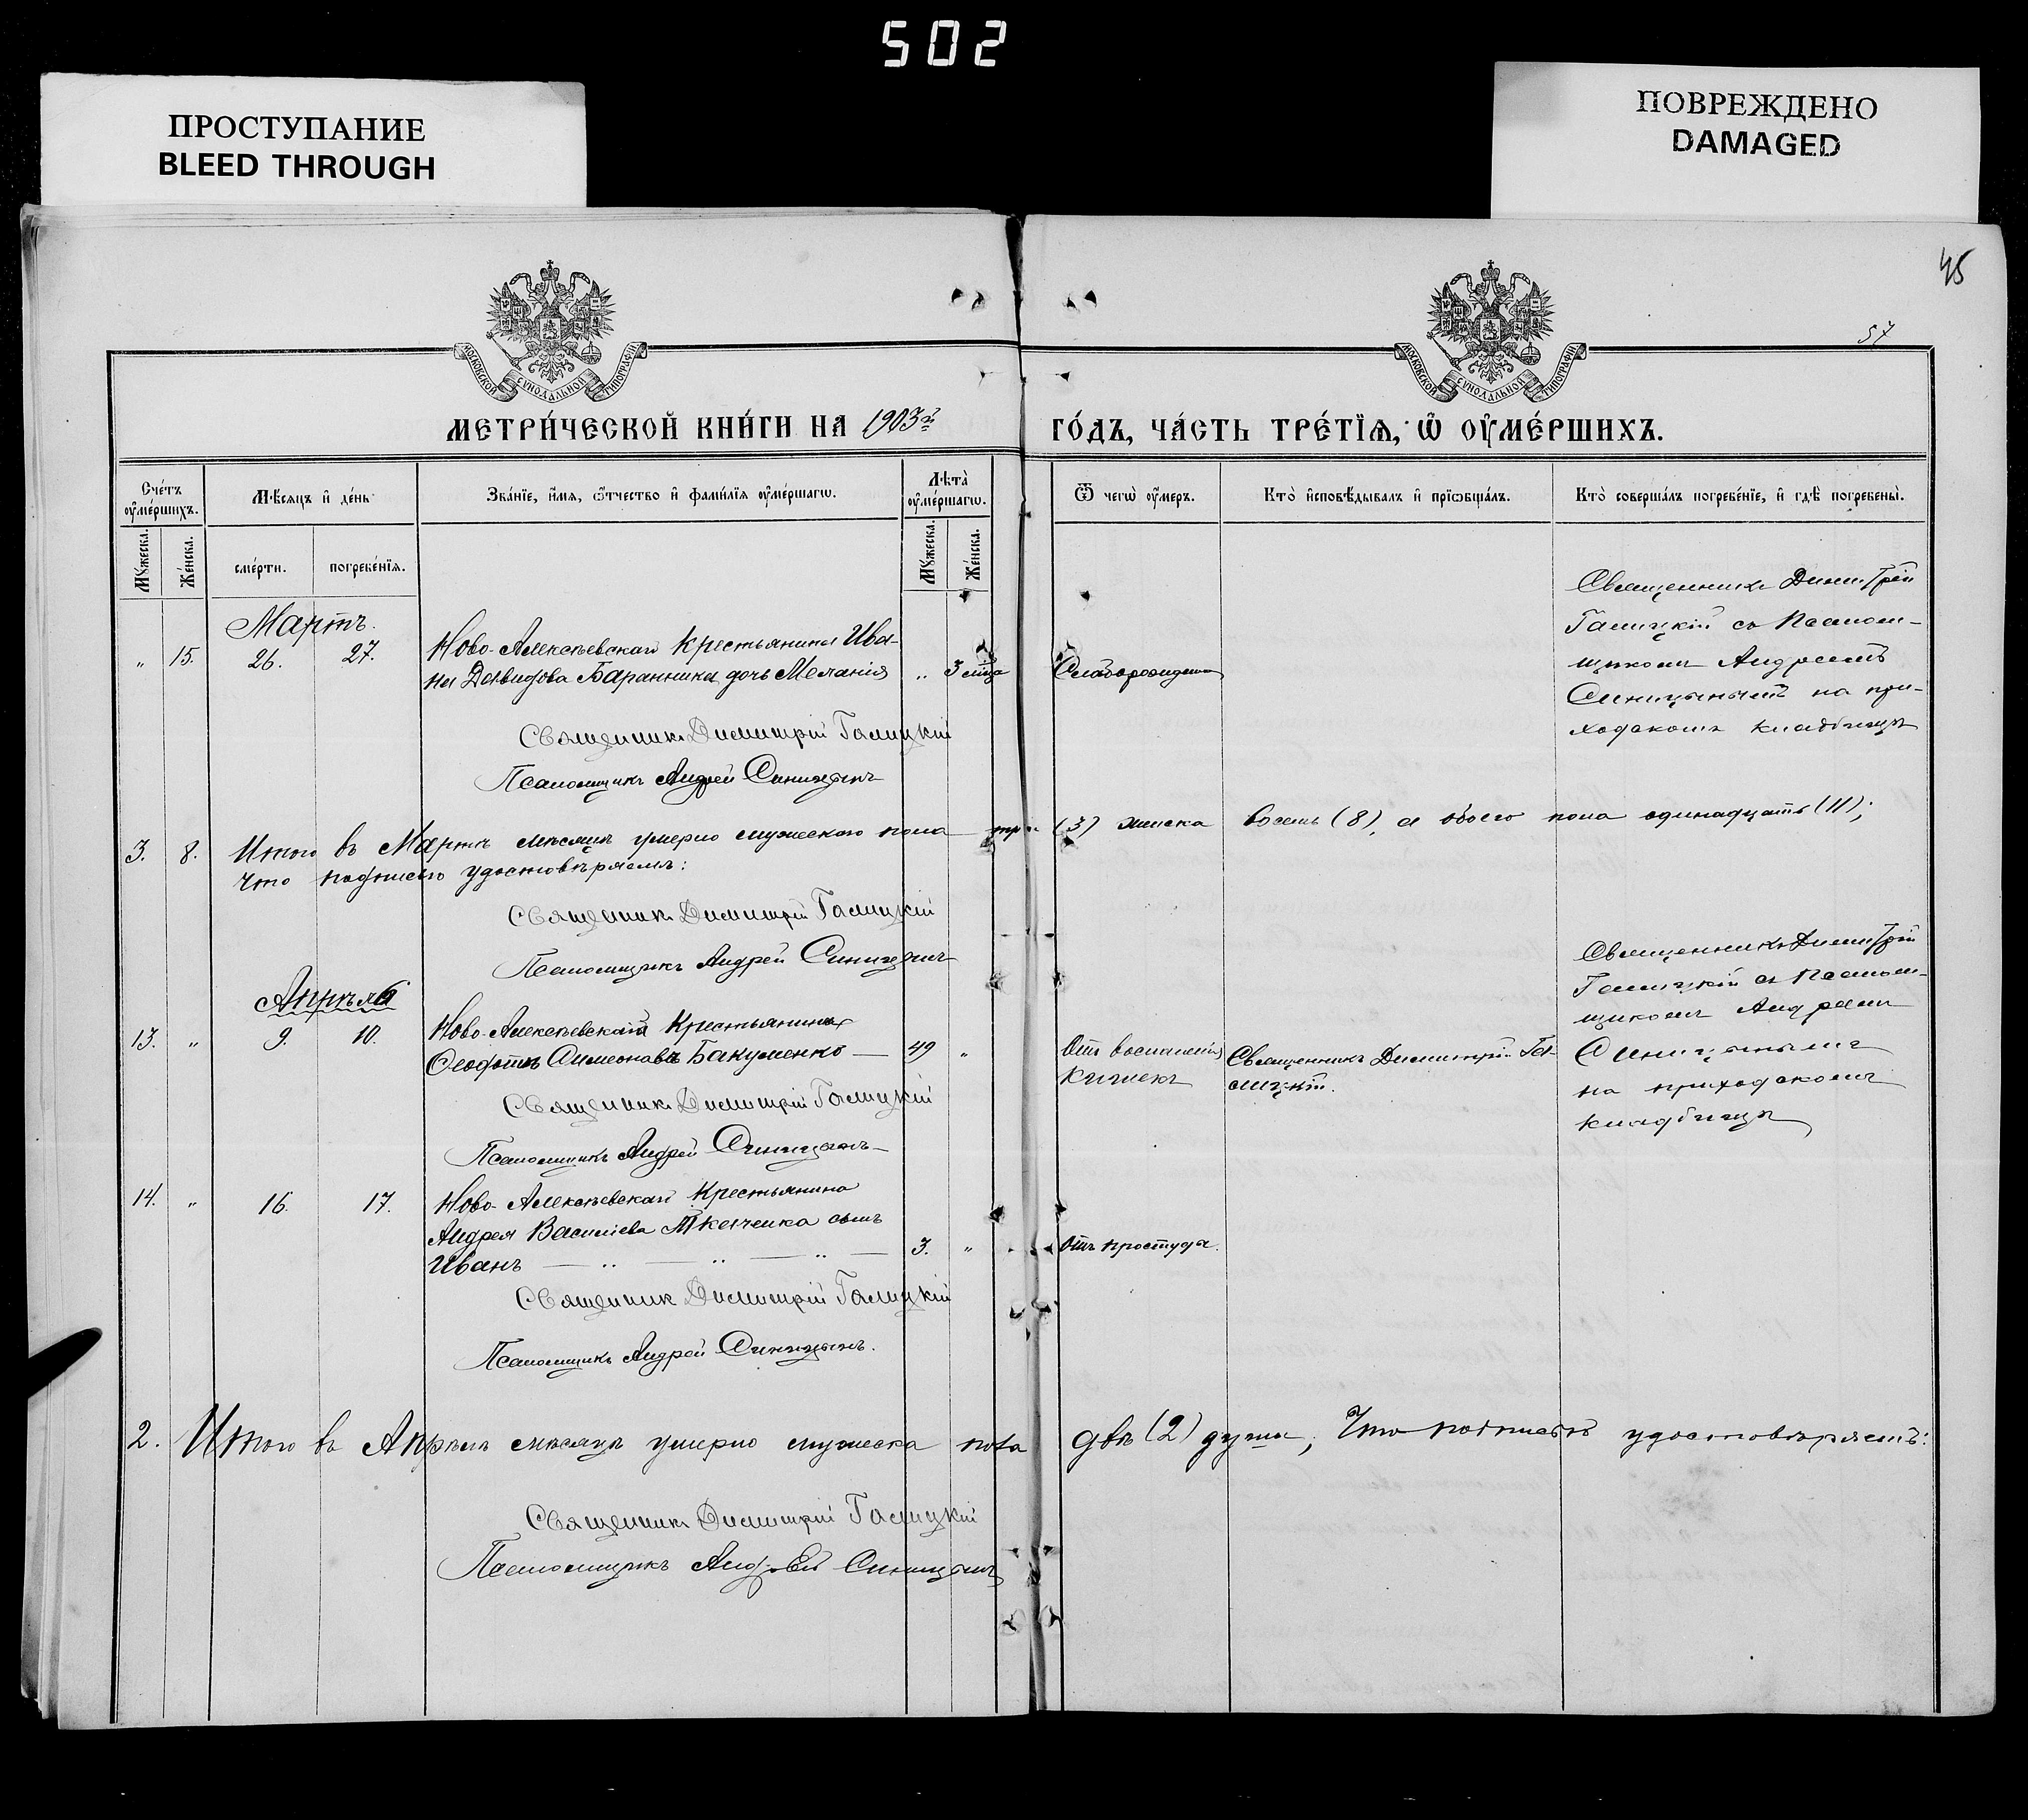 502
ПРОСТУПАНИЕ
BLEED THROUGH
ПОВРЕЖДЕНО
DAMAGED
45
57
МОСКОВСКОЙ СѴНОДАЛЬНОЙ ТИПОГРАФІИ
МОСКОВСКОЙ СѴНОДАЛЬНОЙ ТИПОГРАФІИ
МЕТРИ́ЧЕСКОЙ КНИ́ГИ НА 1903й ГО́ДЪ, ЧА́СТЬ ТРЕ́ТЇЯ, Ѡ ОУМЕ́РШИХЪ.
Сче́тъ оуме́ршихъ.
Мѣсяцъ и де́нь
Зва́нїе, и́мя, ѻ҆́тчество и фами́лїя оуме́ршагѡ.
Лѣта̀ оуме́ршагѡ.
Ѿ чегѡ̀ оу́меръ.
Кто̀ исповѣ́дывалъ и прїѡбща́лъ.
Кто̀ соверша́лъ погребе́нїе, и гдѣ̀ погребены̀.
Мꙋ́жеска.
Же́нска.
сме́рти.
погребе́нїя.
Мꙋ́жеска.
Же́нска.
Мартъ.
" 15. 26. 27. Ново-Алексѣевскай Крестьянина Ива-
на Давидова Баранника дочь Меланія " 3 м̃ца Слаборожденія
Священникъ Димитрій
Галицкій съ Псалом-
щикомъ Андреемъ
Синицынымъ на при-
ходскомъ кладбищѣ
Священникъ Димитрій Галицкій
Псаломщикъ Андрей Синицынъ
3. 8. Итого въ Мартѣ мѣсяцѣ умерло мужеского пола три (3) женска восемь (8), а обоего пола одинадцать (11);
Что подписью удостовѣряемъ:
Священникъ Димитрій Галицкій
Псаломщикъ Андрей Синицынъ
Апрѣль
13. " 9. 10. Ново-Алексѣевскай Крестьянинъ
Ѳеофотъ Симеоновъ Бакуменко — 49 "
Отъ воспаленія
Кишекъ
Священникъ Димитрій Га-
лицкій.
Священникъ Димитрій
Галицкій съ Псалом-
щикомъ Андреемъ
Синицынымъ
на приходскомъ
кладбищѣ
Священникъ Димитрій Галицкій
Псаломщикъ Андрей Синицынъ
14. " 16. 17. Ново-Алексѣевскай Крестьянина
Андрея Василіева Ткаченка сынъ
Иванъ — " — " — " — 3. " Отъ простуда.
Священник Димитрій Галицкій
Псаломщикъ Андрей Синицынъ.
2. Итого въ Апрѣлѣ мѣсяцѣ умерло мужеска пола двѣ (2) души; Что подписью удостовѣряемъ:
Священникъ Димитрій Галицкій
Псаломщикъ Андрей Синицынъ